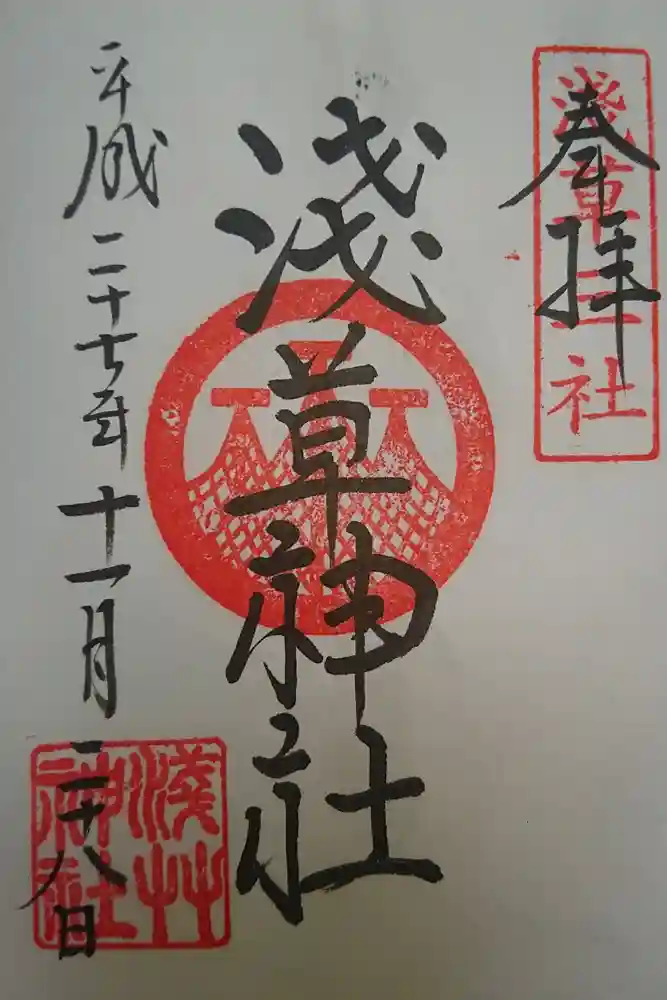 奉拝
淺草三社
淺草神社
平成二十七年十一月二十八日
淺艸
神社